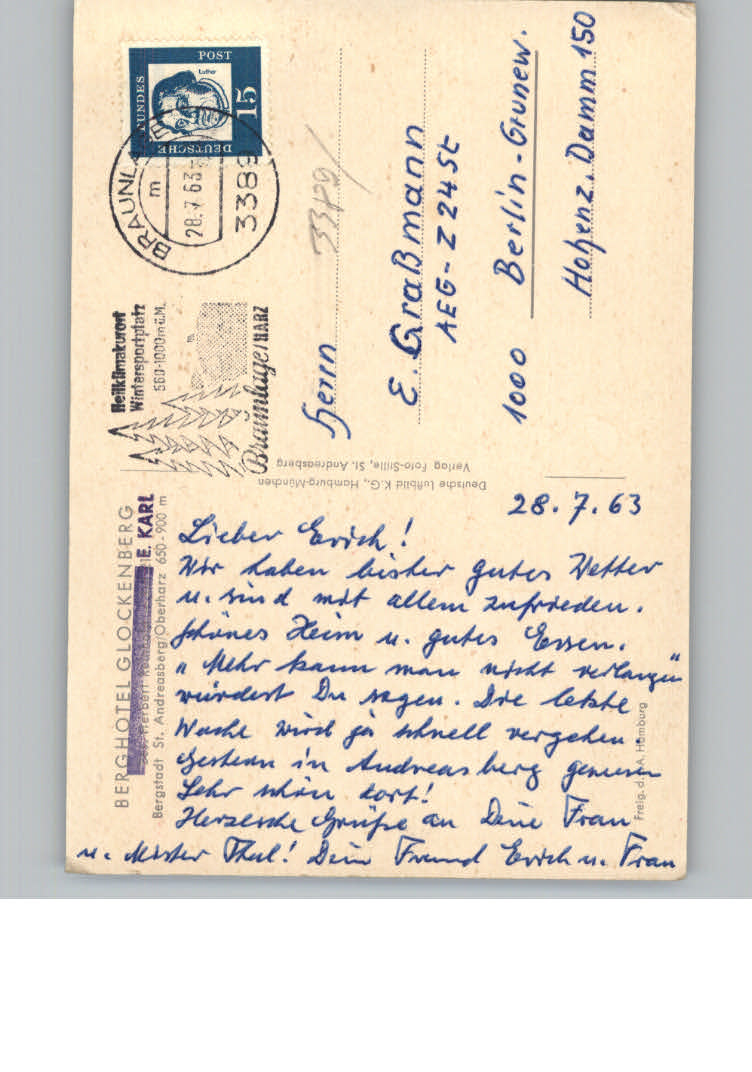 BERGHOTEL GLOCKENBERG
E. KARL
Bergstadt St. Andreasberg/Oberharz 650-900 m
28.7.63
Lieber Erich!
Wir haben bisher gutes Wetter
u. sind mit allem zufrieden.
Schönes Heim u. gutes Essen.
„Mehr kann man nicht verlangen"
würdest Du sagen. Die letzte
Woche wird ja schnell vergehen.
Gestern in Andreasberg gewesen
Sehr schön dort!
Herzliche Grüße an Deine Frau
u. Mister Thal! Dein Freund Erich u. Frau
Freig. d. L.A. Hamburg
Deutsche Luftbild K.G., Hamburg-München
Verlag Foto-Stille, St. Andreasberg
DEUTSCHE BUNDESPOST
Luther
15
BRAUNLAGE
m
28.7.63
3389
Heilklimakurort
Wintersportplatz
560-1000m ü.M.
Braunlage/HARZ
3389/
Herrn
E. Graßmann
AEG-Z 24 St
1000 Berlin-Grunew.
Hohenz. Damm 150